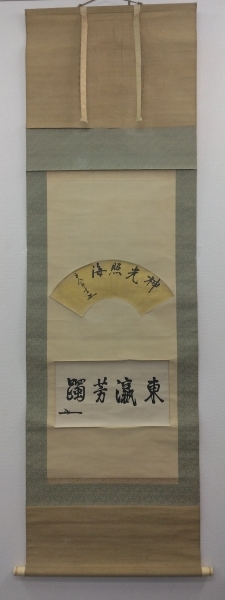 神光照海
東瀛芳躅